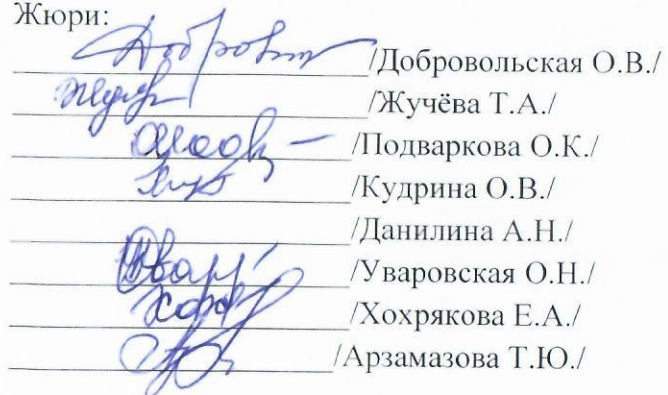 Жюри:
/Добровольская О.В./
/Жучёва Т.А./
/Подваркова О.К./
/Кудрина О.В./
/Данилина А.Н./
/Уваровская О.Н./
/Хохрякова Е.А./
/Арзамазова Т.Ю./